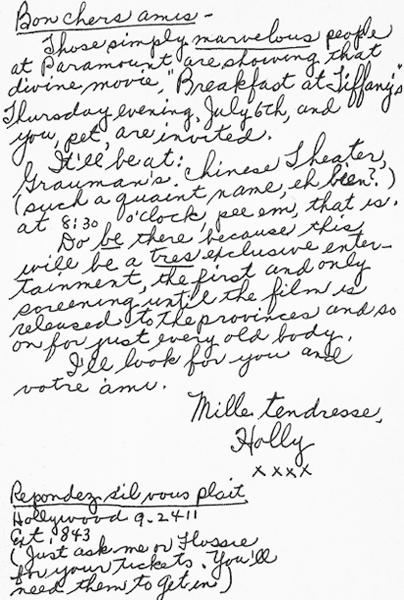 Bon chers amis -
Those simply marvelous people
at Paramount are showing that
divine movie, "Breakfast at Tiffany's"
Thursday evening, July 6th, and
you, pet, are invited.
It'll be at:
Grauman's Chinese Theater,
(such a quaint name, eh bien?)
at 8:30 o'clock, pee em, that is.
Do be there because this
will be a tres exclusive enter-
tainment, the first and only
screening until the film is
released to the provinces and so
on for just every old body.
I'll look for you and
votre ami.
Mille tendresse,
Holly
xxxx
Repondez sil vous plait
Hollywood 9-2411
Ext. 843
(Just ask me or Flossie
for your tickets. You'll
need them to get in)